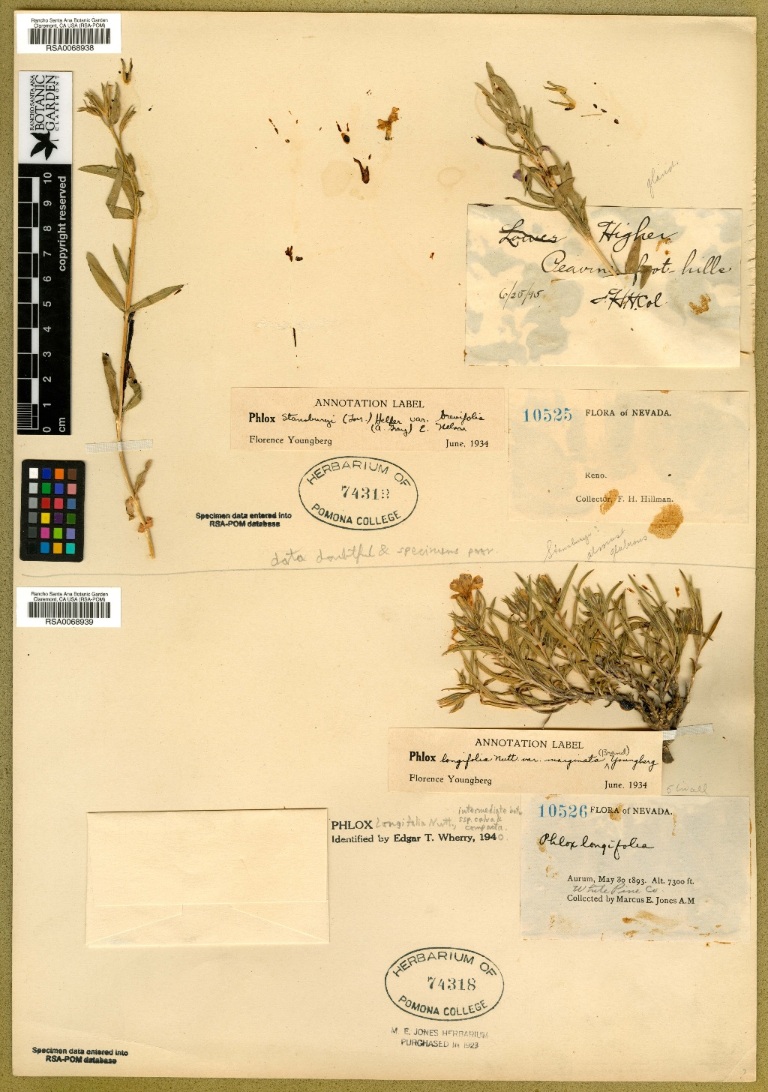 Rancho Santa Ana Botanic Garden
Claremont, CA USA (RSA-POM)
RSA0068938
RANCHO SANTA ANA
BOTANIC
GARDEN
CLAREMONT
copyright reserved
0 1 2 3 4 5 6 7 8 9 10
cm
gland.
Lower Higher
foot-hills
6/25/95 Col.
ANNOTATION LABEL
Phlox Stansburyi (Torr.) Heller var. brevifolia
(A. Gray) E. Nelson
Florence Youngberg June, 1934
10525 FLORA of NEVADA.
Reno.
Collector, F. H. Hillman.
HERBARIUM OF
POMONA COLLEGE
Specimen data entered into
RSA-POM database
Stansburyi?
almost
glabrous
data doubtful & specimens poor.
Rancho Santa Ana Botanic Garden
Claremont, CA USA (RSA-POM)
RSA0068939
ANNOTATION LABEL
Phlox longifolia Nutt var. marginata (Brand) Youngberg
Florence Youngberg June, 1934
PHLOX Longifolia Nutt.
intermediate
compacta
Identified by Edgar T. Wherry, 1940
10526 FLORA of NEVADA.
Phlox longifolia
Aurum, May 30 1893. Alt. 7300 ft.
White Pine Co.
Collected by Marcus E. Jones A.M
HERBARIUM OF
74318
POMONA COLLEGE
M. E. JONES HERBARIUM
PURCHASED IN 1923
Specimen data entered into
RSA-POM database